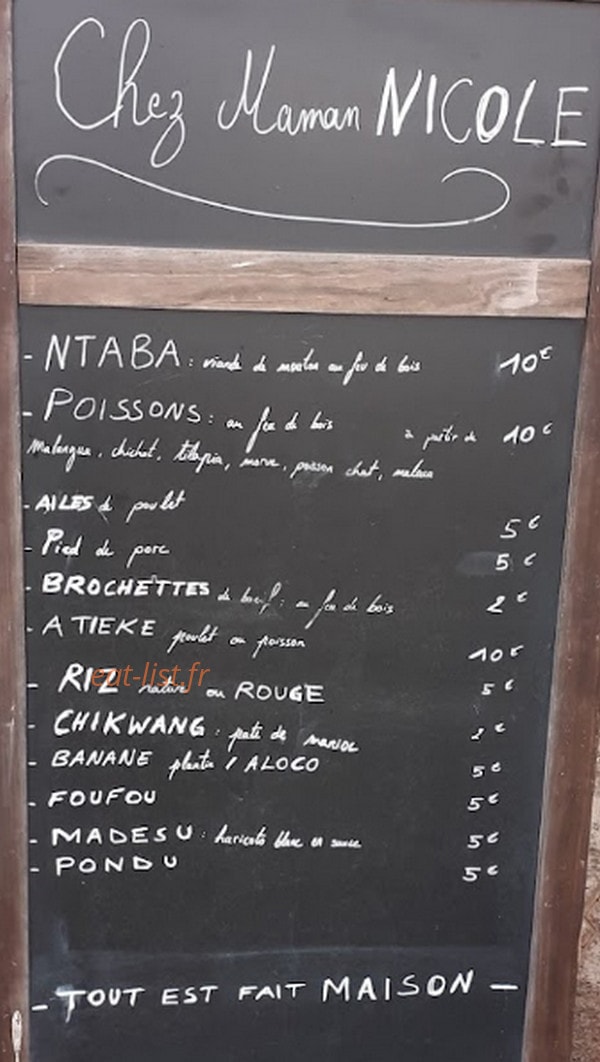 Chez Maman NICOLE
- NTABA : viande de mouton au feu de bois 10€
- POISSONS : au feu de bois à partir de 10€
Malangua, chichat, tilapia, morue, poisson chat,
- AILES de poulet 5€
- Pied de porc 5€
- BROCHETTES de bœuf : au feu de bois 2€
- ATIEKE poulet ou poisson 10€
- RIZ nature ou ROUGE 5€
eat-list.fr
- CHIKWANG : pate de manioc 2€
- BANANE plantin / ALOCO 5€
- FOUFOU 5€
- MADESU : haricots blanc en sauce 5€
- PONDU 5€
- TOUT EST FAIT MAISON -